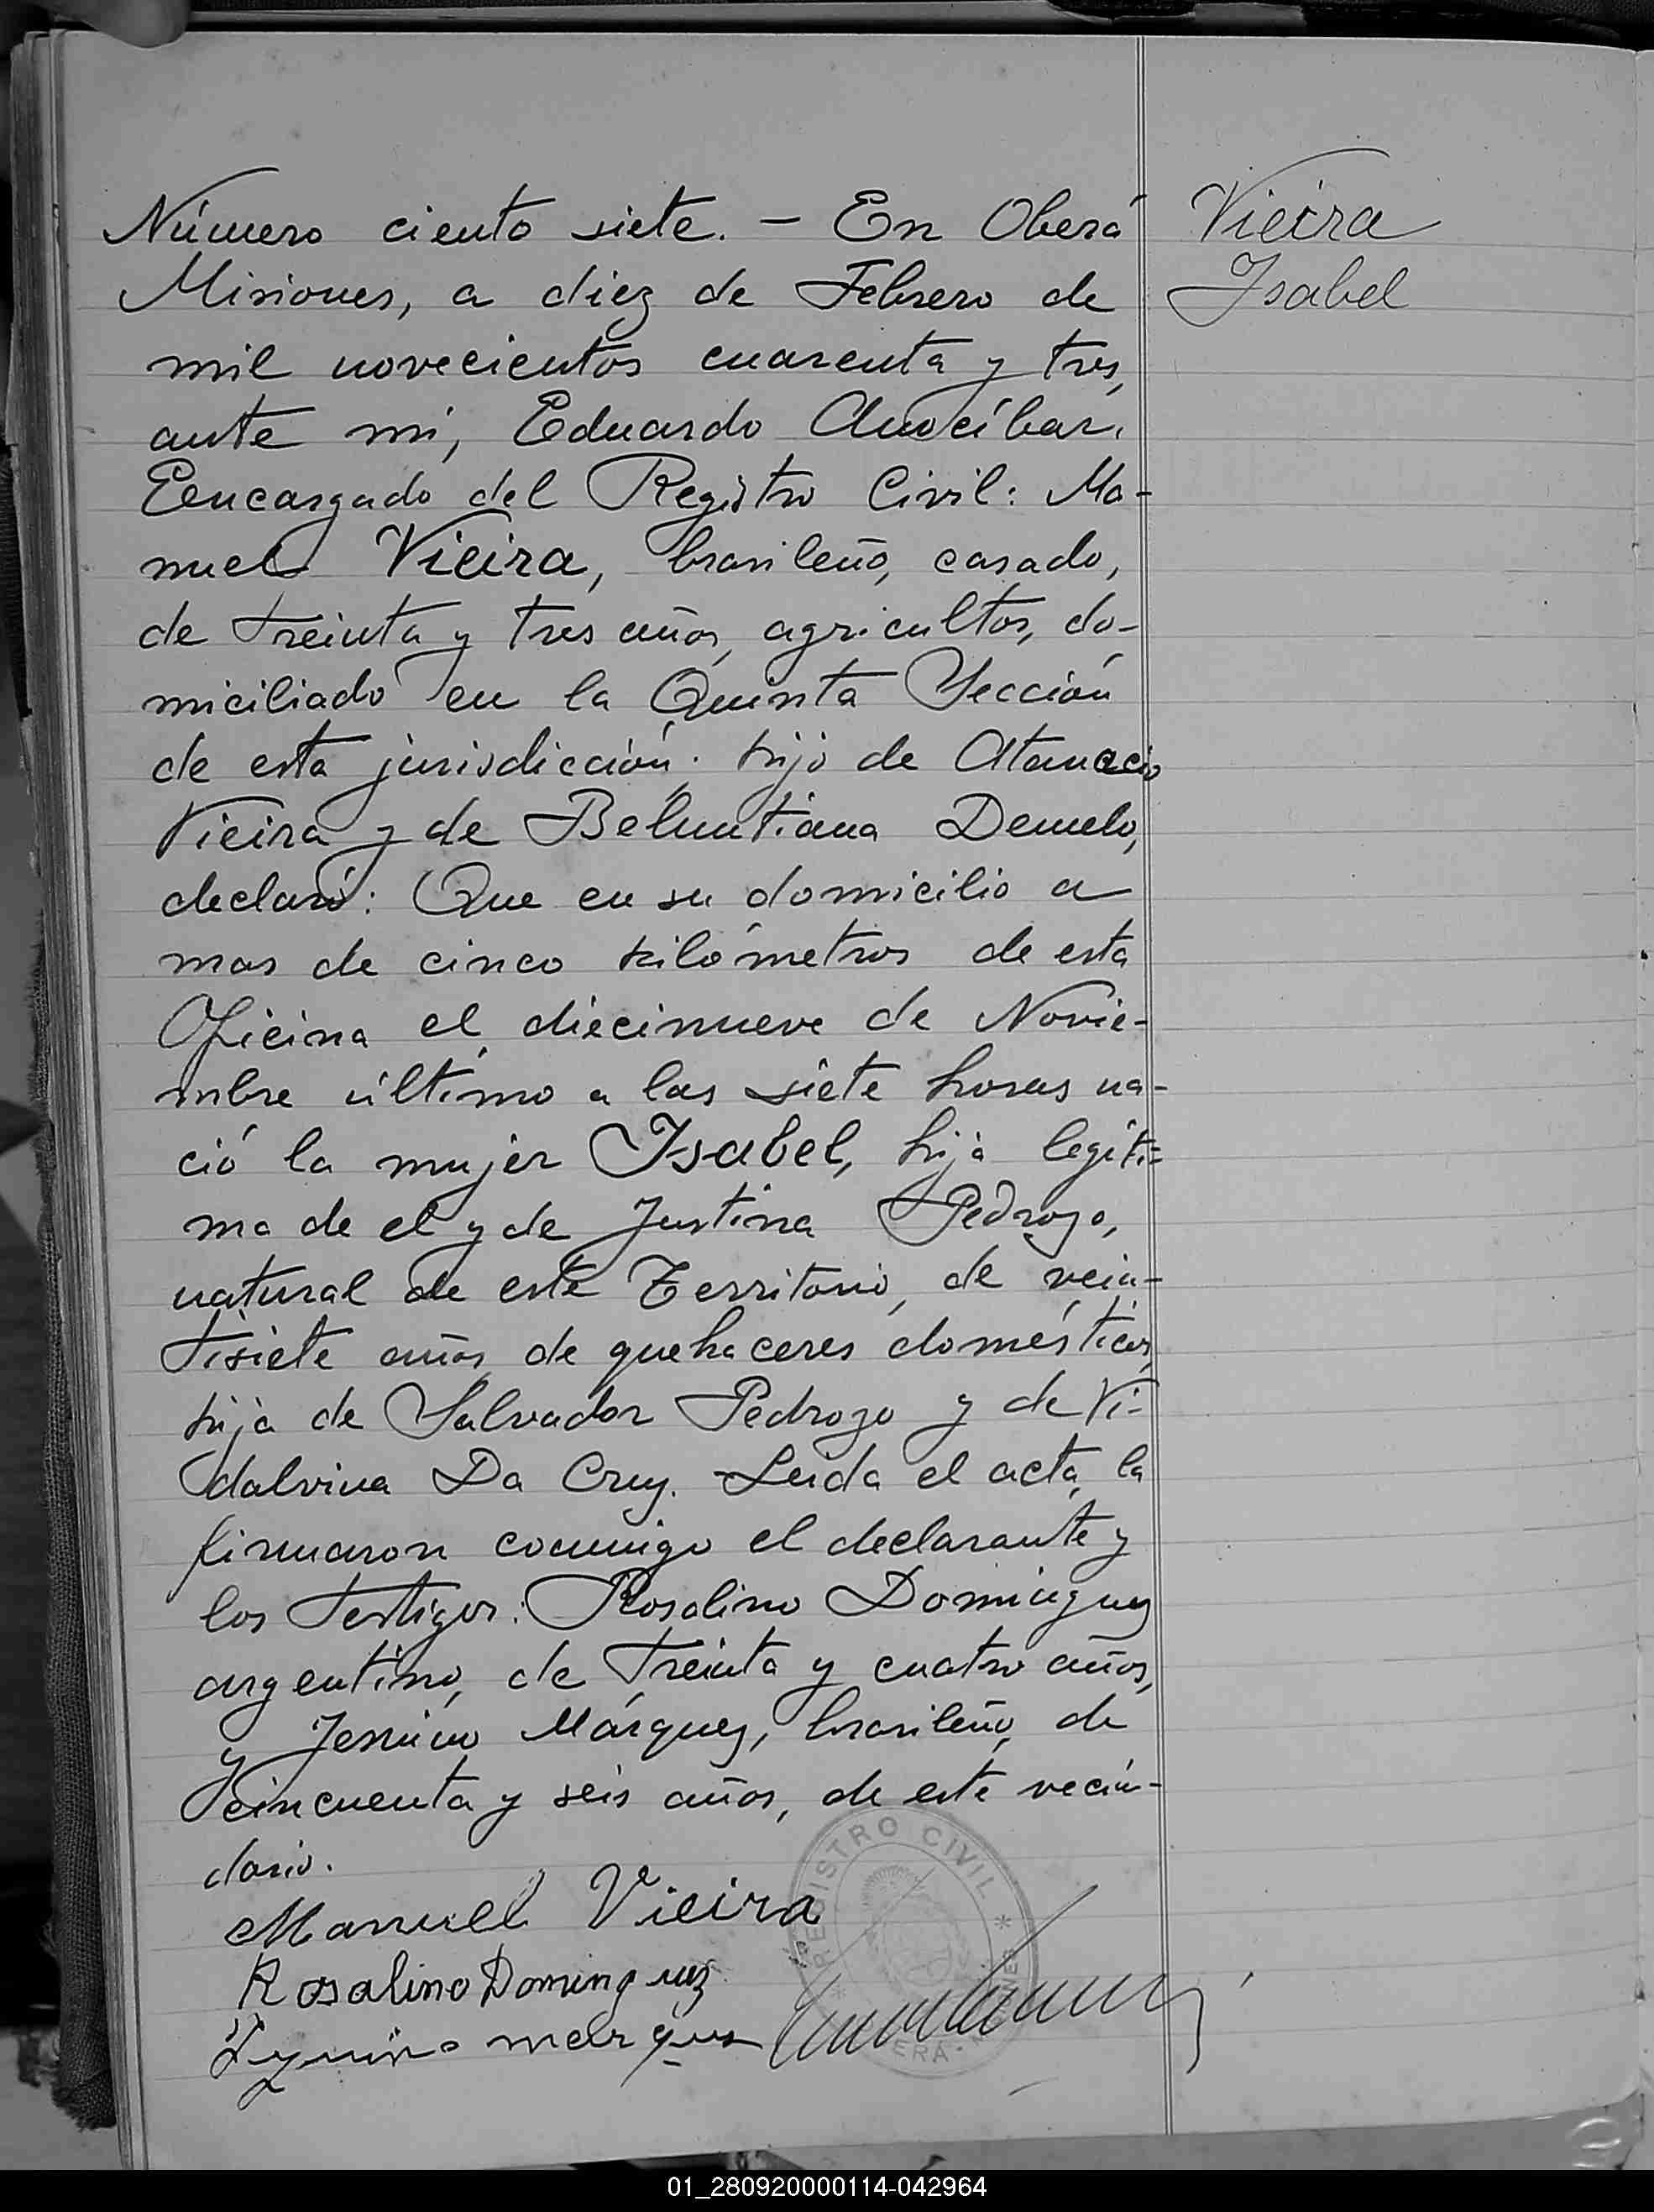 Número ciento siete. — En Oberá
Misiones, a diez de Febrero de
mil novecientos cuarenta y tres,
ante mí, Eduardo
Encargado del Registro Civil: Ma-
nuel Vieira, brasileño, casado,
de treinta y tres años, agricultor, do-
miciliado en la Quinta Sección
de esta jurisdicción. hijo de Atanacio
Vieira y de Demelo,
declaró: Que en su domicilio a
mas de cinco kilómetros de esta
Oficina el diecinueve de Novie-
mbre último a las siete horas na-
ció la mujer Isabel, hija legíti=
ma de el y de Justina Pedrozo,
natural de este Territorio, de vein-
tisiete años, de quehaceres domésticos,
hija de Salvador Pedrozo y de Vi-
dalvina Da Cruz. Leida el acta, la
firmaron conmigo el declarante y
los testigos: Rosalino Dominguez
argentino, de treinta y cuatro años,
y Márquez, brasileño, de
cincuenta y seis años, de este vecin-
dario.
Manuel Vieira
Rosalino Dominguez
marques
REGISTRO CIVIL
Vieira
Isabel
01_280920000114-042964